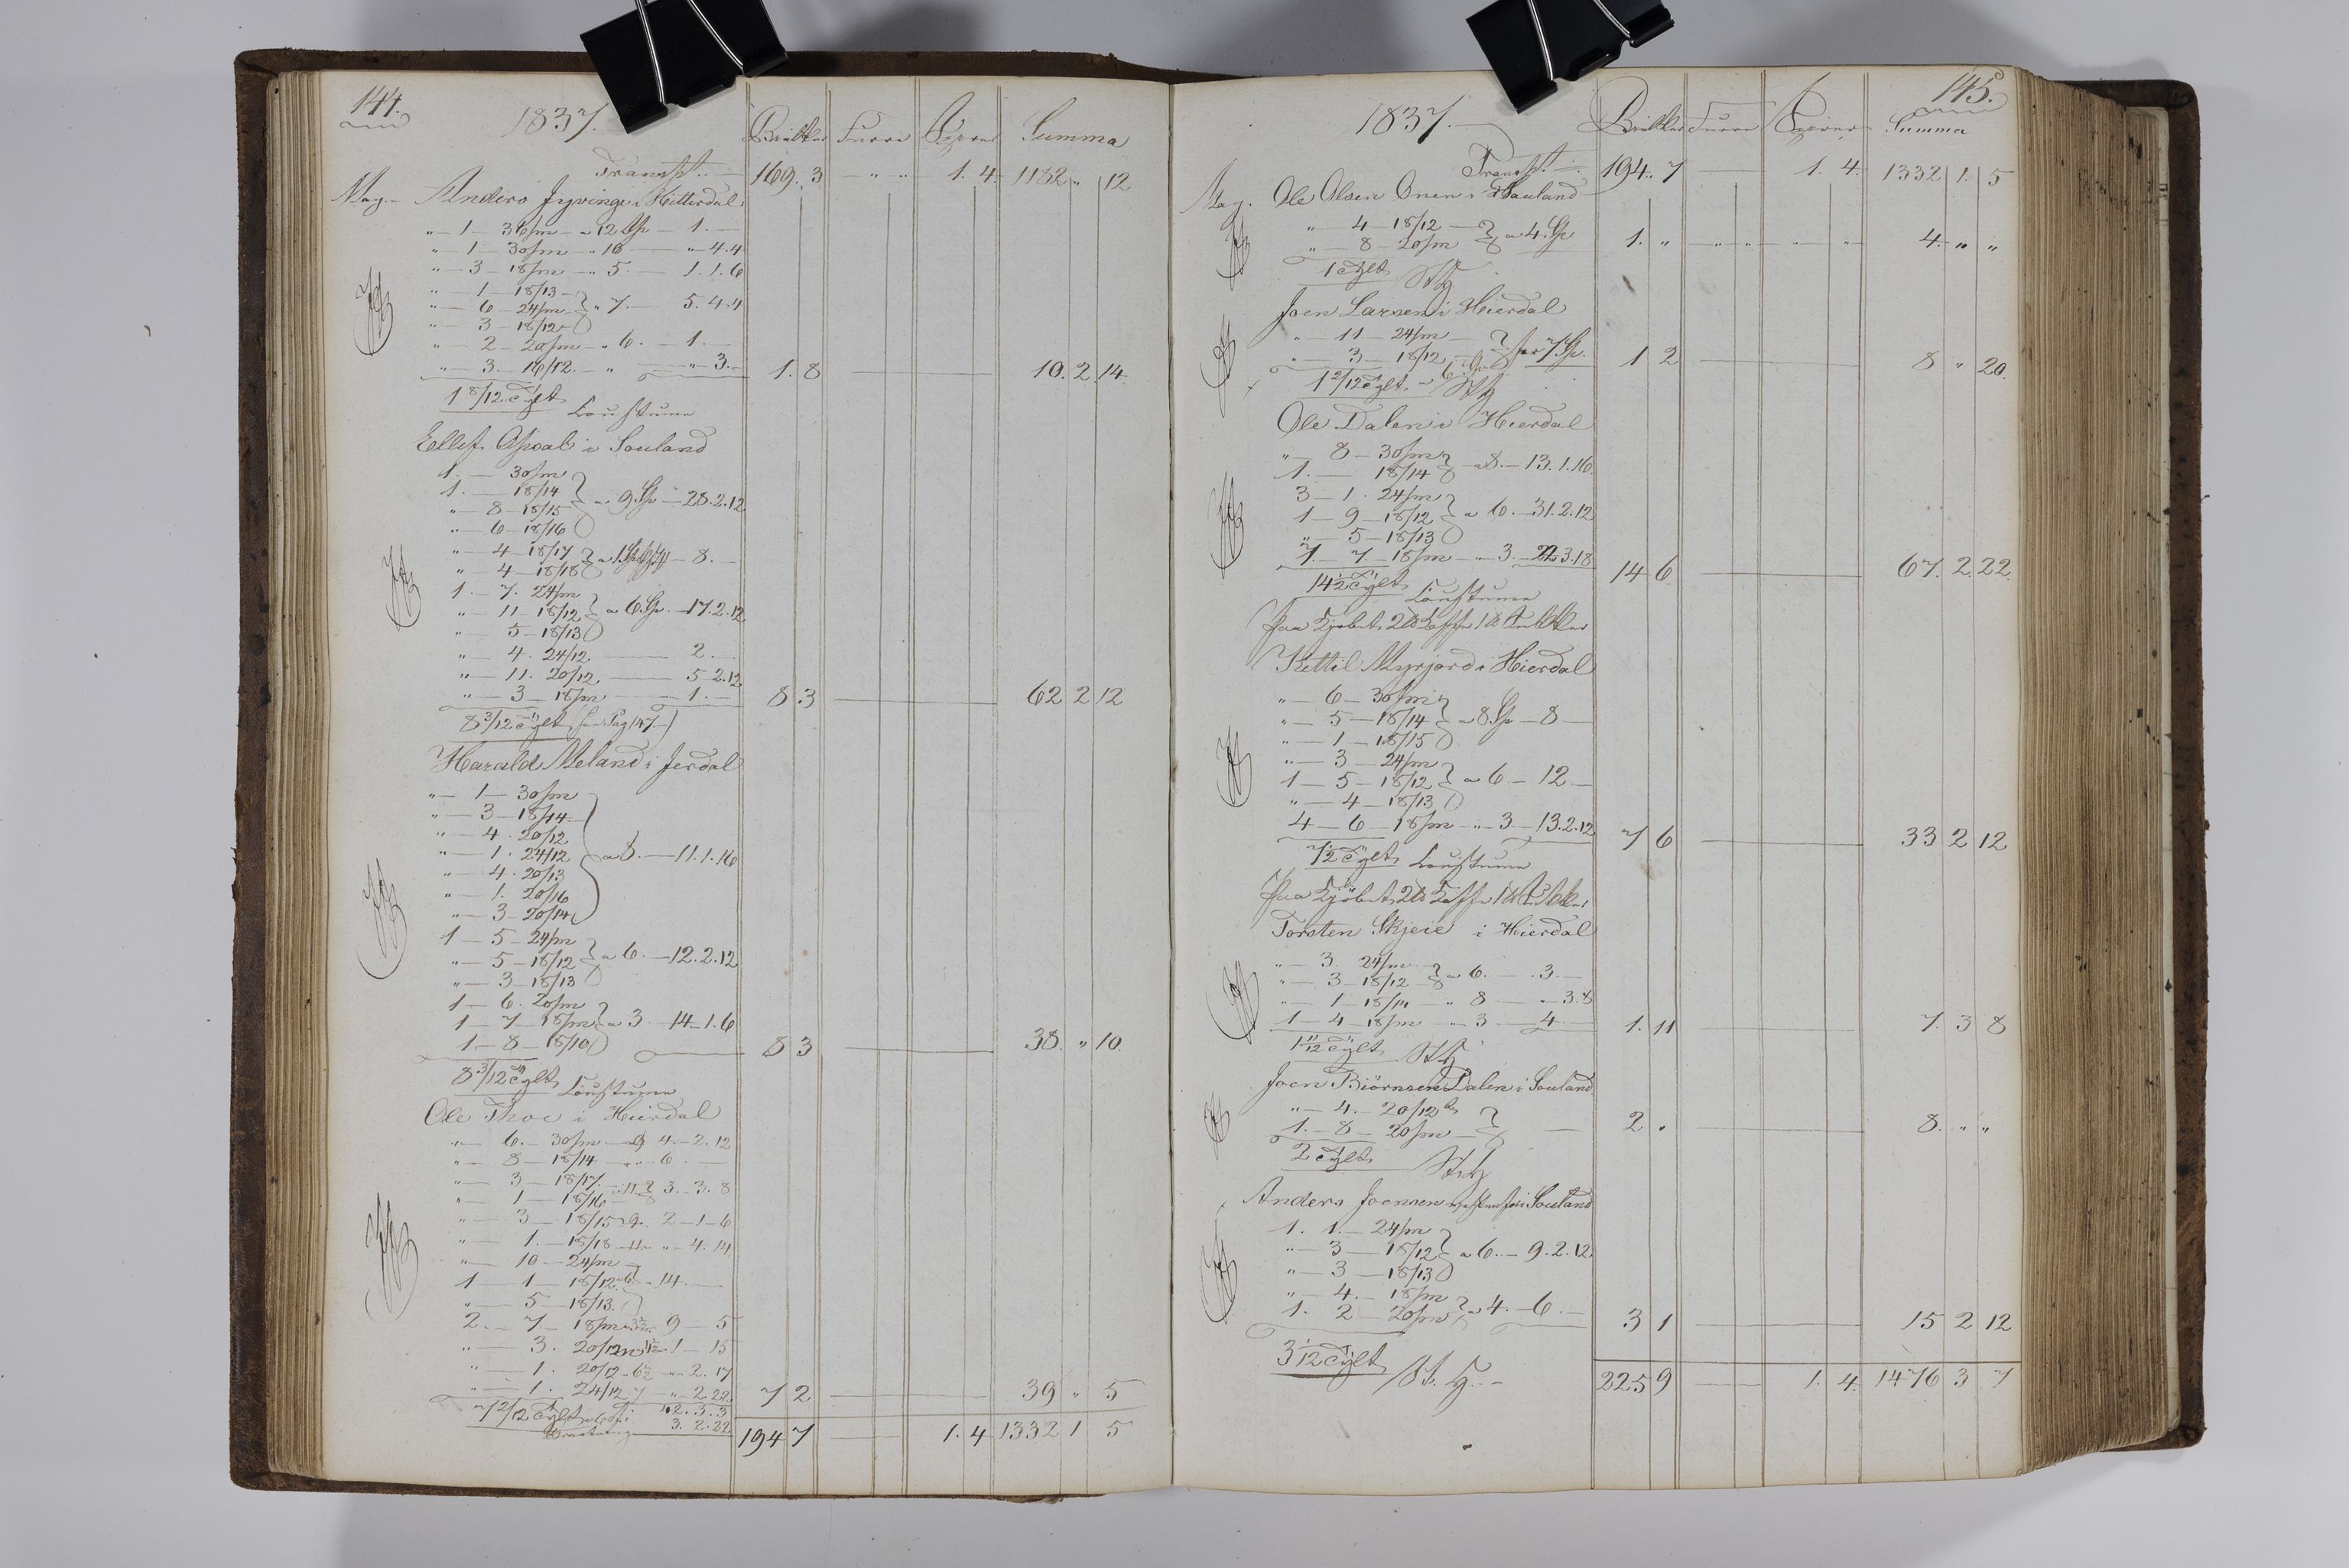 144.
1837. Furru Summa
Transpt. 169. 3 " " 1. 4. 1182 " 12
May. Anders Jyvinge i Hitterdal
"—1—36/m—a 12 Sp—1.—
"—1—30/m—" 16—"—4.4
"—3—18/m—" 5.—1.1.6
"—1—18/13
"—6—24/m " 7.—5.4.4
"—3—18/12
"—2—20/m—" 6.—1.—
"—3.—16/12.—" —"—3.— 1. 8 10. 2. 14
1 8/12 Tylt
Ellef Aasoal i Souland
1.—30/m
1.—18/14 a 9 Sp—28.2.12
"—8—18/15
"—6—18/16
"—4—18/17 —8.—
"—4—18/18
1—7. 24/m
"—11—18/12 a 6 Sp.—17.2.12
"—5—18/13
"—4. 24/12.—2.—
"—11. 20/12.—5 2.12
"—3—18/m—1.— 8. 3 62 2 12
8 3/12 Tylt Pag 147.
Harald Meland i Jerdal
"—1—30/m
"—3—18/14
"—4. 20/12
"—1. 24/12 a 8.—11.1.16
"—4. 20/13
"—1. 20/16
"—3—20/14
1—5—24/m
"—5—18/12 a 6.—12.2.12
"—3—18/13
1—6. 20/m
1—7—18/m a 3—14—1.6
1—8—18/10 8 3 38. " 10.
8 3/12 Tylt
Ole Thoe i Hierdal
"—6.—30/m—9 4.—2.12
"—8—18/14—"—6.—
"—3—18/17. 11. 3.—3. 8
"—1—18/16
"—3—18/15 a 9. 2—1—6
"—1.—18/18—11 "—4. 14
"—10—24/m
1—1—18/12 6—14.—
"—5—18/13.
2.—7—18/m 9—5
"—3. 20/12 1—15
"—1. 20/12—6½—"—2. 17
"—1. 24/12 7—"—2.22 7 2 39 " 5
7 2/12 Tylt 42. 3. 3
3. 2. 22
194 7 1. 4 1332 1 5
145.
1837. Furru Summa
Transpt. 194. 7 1. 4. 1332 1. 5
May. Ole Olsen Onen i Souland
"—4—18/12 a 4 Sp
"—8—20/m 1. " " " " " 4. " "
1 Tylt
Joen Larsen i Hierdal
"—11—24/m
"—3—18/12 for 7 Sp. 1 2 8 " 20.
1 2/12 Tylt
Ole Dalen i Hierdal
"—8—30/m
1.—18/14 a 8.—13.1.16
3—1. 24/m
1—9—18/12 a 6.—31.2.12
"—5—18/13
7—18/m—"—3.—22 3.18 14 6 67. 2. 22.
14½ Tylt
Paa Kjøbet 2 Kaffe 1
Kittil Myrjord i Hierdal
"—6—30/m
"—5—18/14 a 8 Sp—8—
"—1—18/15
"—3—24/m
1—5—18/12 a 6—12.—
"—4—18/13
4—6—18/m—"—3—13.2.12 7 6 33 2 12
7½ Tylt
Paa Kjøbet 2 Kaffe 1
Torsten Skjeie i Hierdal
"—3. 24/m
"—3—18/12 a 6.—3.—
"—1—18/14—" 8—"—3.8
1—4—18/m—"—3—4.— 1. 11 7. 3 8
1 11/12 Tylt
Joen Biörnsen Dalen i Souland
"—4.—20/12
1.—8—20/m 2 " 8. " "
2 Tylt
Anders Joensen i Souland
1. 1.—24/m
"—3—18/12 a 6.—9.2.12
"—3—18/13
"—4.—18/m
1. 2—20/m a 4.—6.— 3 1 15 2 12
3 1/12 Tylt
225 9 1. 4. 1476 3 7